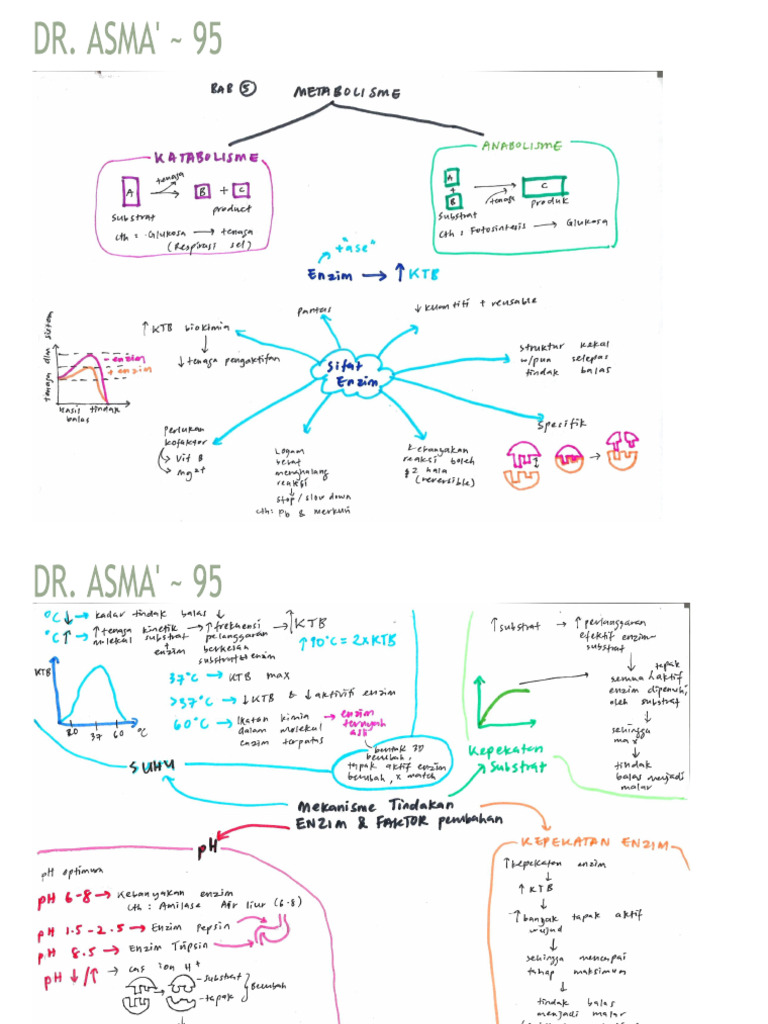 DR. ASMA' ~ 95
BAB 5 METABOLISME
KATABOLISME
A
tenaga
B + C
substrat
product
cth : Glukosa → tenaga
(Respirasi sel)
ANABOLISME
A
+
B
tenaga
C
Substrat
produk
cth : Fotosintesis → Glukosa
+ "ase"
Enzim → ↑ KTB
Sifat
Enzim
↑ KTB biokimia
↓
↓ tenaga pengaktifan
Pantas
↓ kuantiti + reusable
struktur kekal
w/pun selepas
tindak balas
Spesifik
Kebanyakan
reaksi boleh
2 hala
(reversible)
Logam
berat
menghalang
reaksi
↓
stop / slow down
cth: Pb & merkuri
Perlukan
kofaktor
Vit B
Mg2+
tenaga dlm sistem
- enzim
+ enzim
hasil tindak
balas
DR. ASMA' ~ 95
°C ↓ → kadar tindak balas ↓
°C ↑ → ↑ tenaga kinetik → ↑ frekuensi → ↑ KTB
molekul substrat pelanggaran
+ enzim berkesan
substrat & enzim
↑ 10°C = 2x KTB
KTB
20 37 60 °C
37°C → KTB max
>37°C → ↓ KTB & ↓ aktiviti enzim
60°C → Ikatan kimia → enzim
dalam molekul ternyah
enzim terputus asli
bentuk 3D
berubah,
tapak aktif enzim
berubah, x match
SUHU
↑ substrat → ↑ perlanggaran
efektif enzim-
substrat
↓
semua tapak
aktif
enzim dipenuhi
oleh substrat
↓
sehingga
max
↓
tindak
balas menjadi
malar
Kepekatan
Substrat
Mekanisme Tindakan
ENZIM & FAKTOR perubahan
pH
pH optimum
pH 6-8 → Kebanyakan enzim
cth : Amilase Air liur (6-8)
pH 1.5-2.5 → Enzim Pepsin
pH 8.5 → Enzim Tripsin
pH ↓/↑ → cas ion H+
- substrat
- tapak
Berubah
KEPEKATAN ENZIM
↑ kepekatan enzim
↓
↑ KTB
↓
↑ banyak tapak aktif
wujud
↓
sehingga mencapai
tahap maksimum
↓
tindak balas
menjadi malar